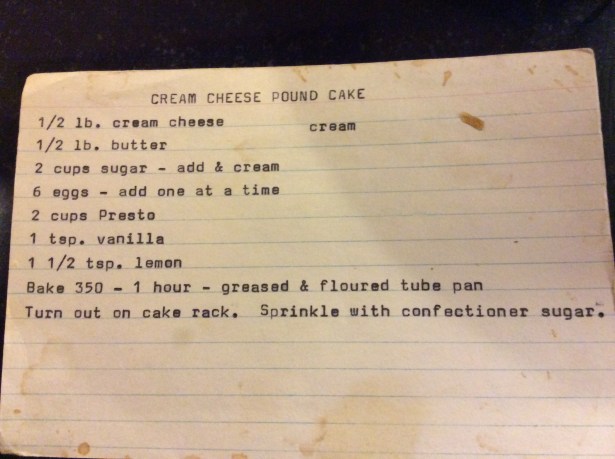 CREAM CHEESE POUND CAKE
1/2 lb. cream cheese cream
1/2 lb. butter
2 cups sugar - add & cream
6 eggs - add one at a time
2 cups Presto
1 tsp. vanilla
1 1/2 tsp. lemon
Bake 350 - 1 hour - greased & floured tube pan
Turn out on cake rack. Sprinkle with confectioner sugar.